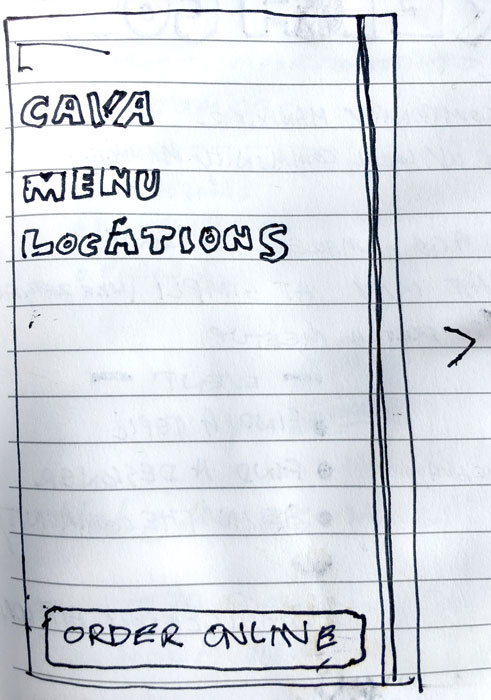 CAVA
MENU
LOCATIONS
ORDER ONLINE